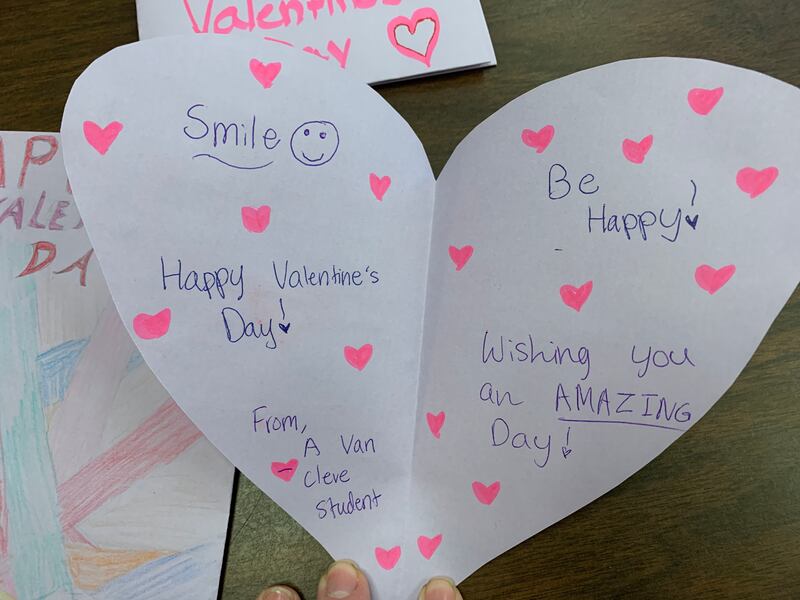 Valentine's
Day
Smile
Happy Valentine's
Day!
From,
A Van
Cleve
Student
Be
Happy!
Wishing you
an AMAZING
Day!
DA